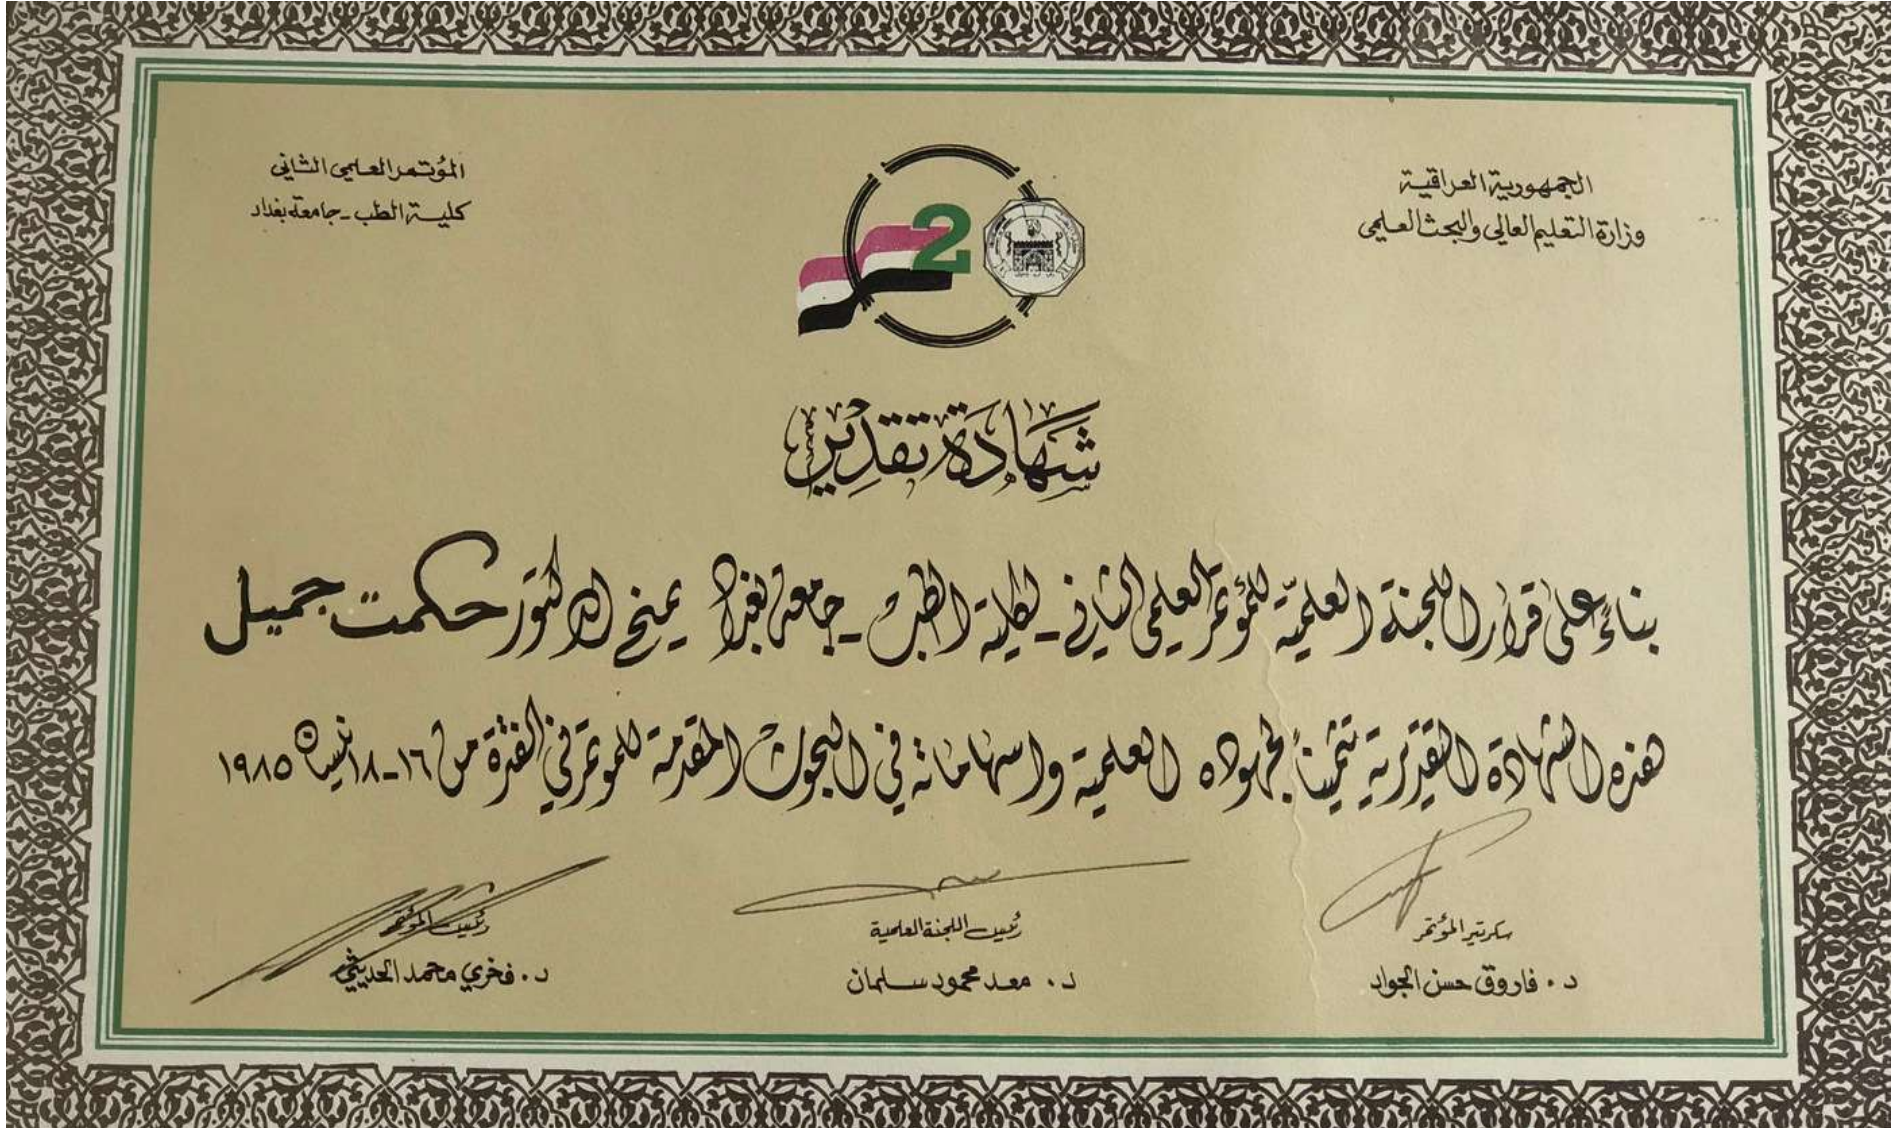 الجمهورية العراقية
وزارة التعليم العالي والبحث العلمي
المؤتمر العلمي الثاني
كلية الطب - جامعة بغداد
2
شَهَادَة تقدِير
بناءً على قرار اللجنة العلميّة للمؤتمر العلمي الثاني - لكلية الطب - جامعة بغداد يمنح الدكتور حكمت جميل
هذه الشهادة التقديرية تثميناً لجهوده العلمية واسهاماته في البحوث المقدمة للموتمر في الفترة من ١٦-١٨ نيسان ١٩٨٥
سكرتير المؤتمر
د. فاروق حسن الجواد
رئيس اللجنة العلمية
د. معد محمود سلمان
رئيس المؤتمر
د. فخري محمد الحديثي